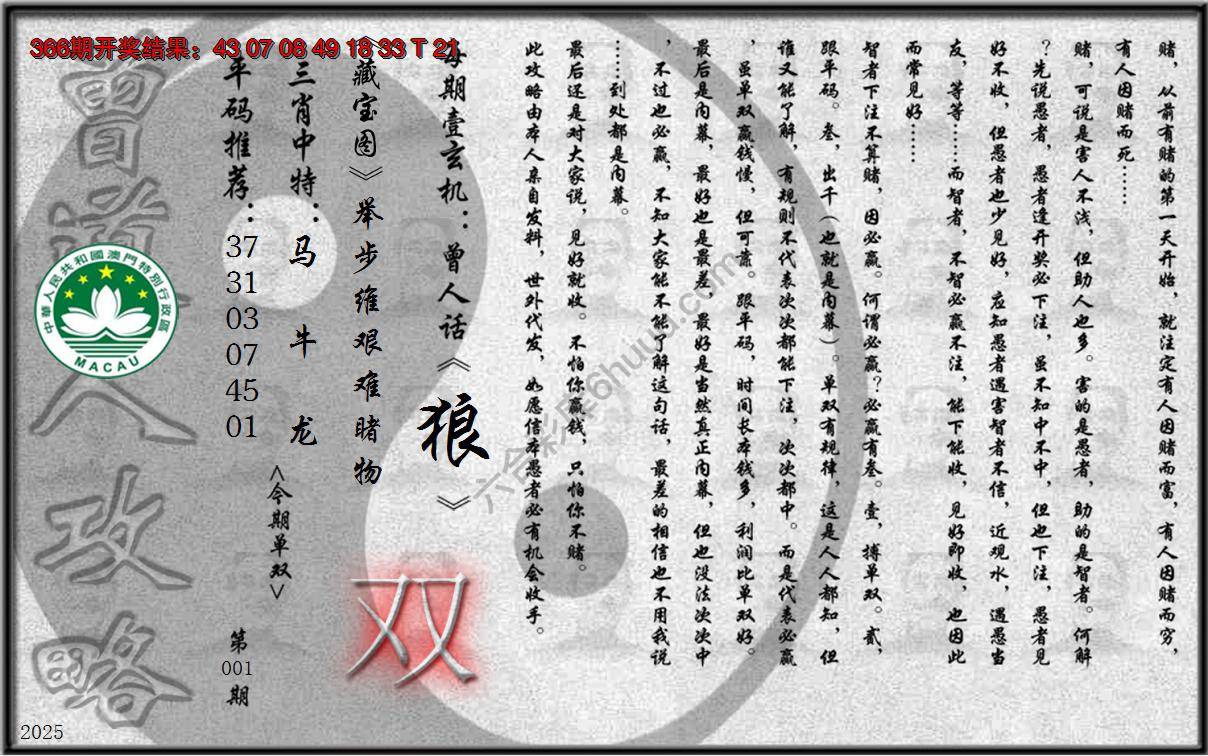 366期开奖结果：43 07 08 49 18 33 T 21
赌，从前有赌的第一天开始，就注定有人因赌而富，有人因赌而穷，
有人因赌而死……
赌，可说是害人不浅，但助人也多。害的是愚者，助的是智者。何解
？先说愚者，愚者逢开奖必下注，虽不知中不中，但也下注，愚者见
好不收，但愚者也少见好，应知愚者遇害智者不信，近观水，遇愚当
友，等等……而智者，不智必赢不注，能下能收，见好即收，也因此
而常见好……
智者下注不算赌，因必赢。何谓必赢？必赢有叁。壹，搏单双。贰，
跟平码。叁，出千（也就是内幕）。单双有规律，这是人人都知，但
谁又能了解，有规则不代表次次都能下注，次次都中。而是代表必赢
，虽单双赢钱慢，但可靠。跟平码，时间长本钱多，利润比单双好。
最后是内幕，最好也是最差，最好是当然真正内幕，但也没法次次中
，不过也必赢，不知大家能不能了解这句话，最差的相信也不用我说
……到处都是内幕。
最后还是对大家说，见好就收。不怕你赢钱，只怕你不赌。
此攻略由本人亲自发料，世外代发，如愿信本愚者必有机会收手。
每期壹玄机：曾人话《狼》
《藏宝图》举步维艰难睹物
双
三肖中特：马 牛 龙
<今期单双>
平码推荐：37 31 03 07 45 01
第001期
曾道人攻略
中華人民共和國澳門特別行政區
MACAU
六合彩库6huuu.com
2025